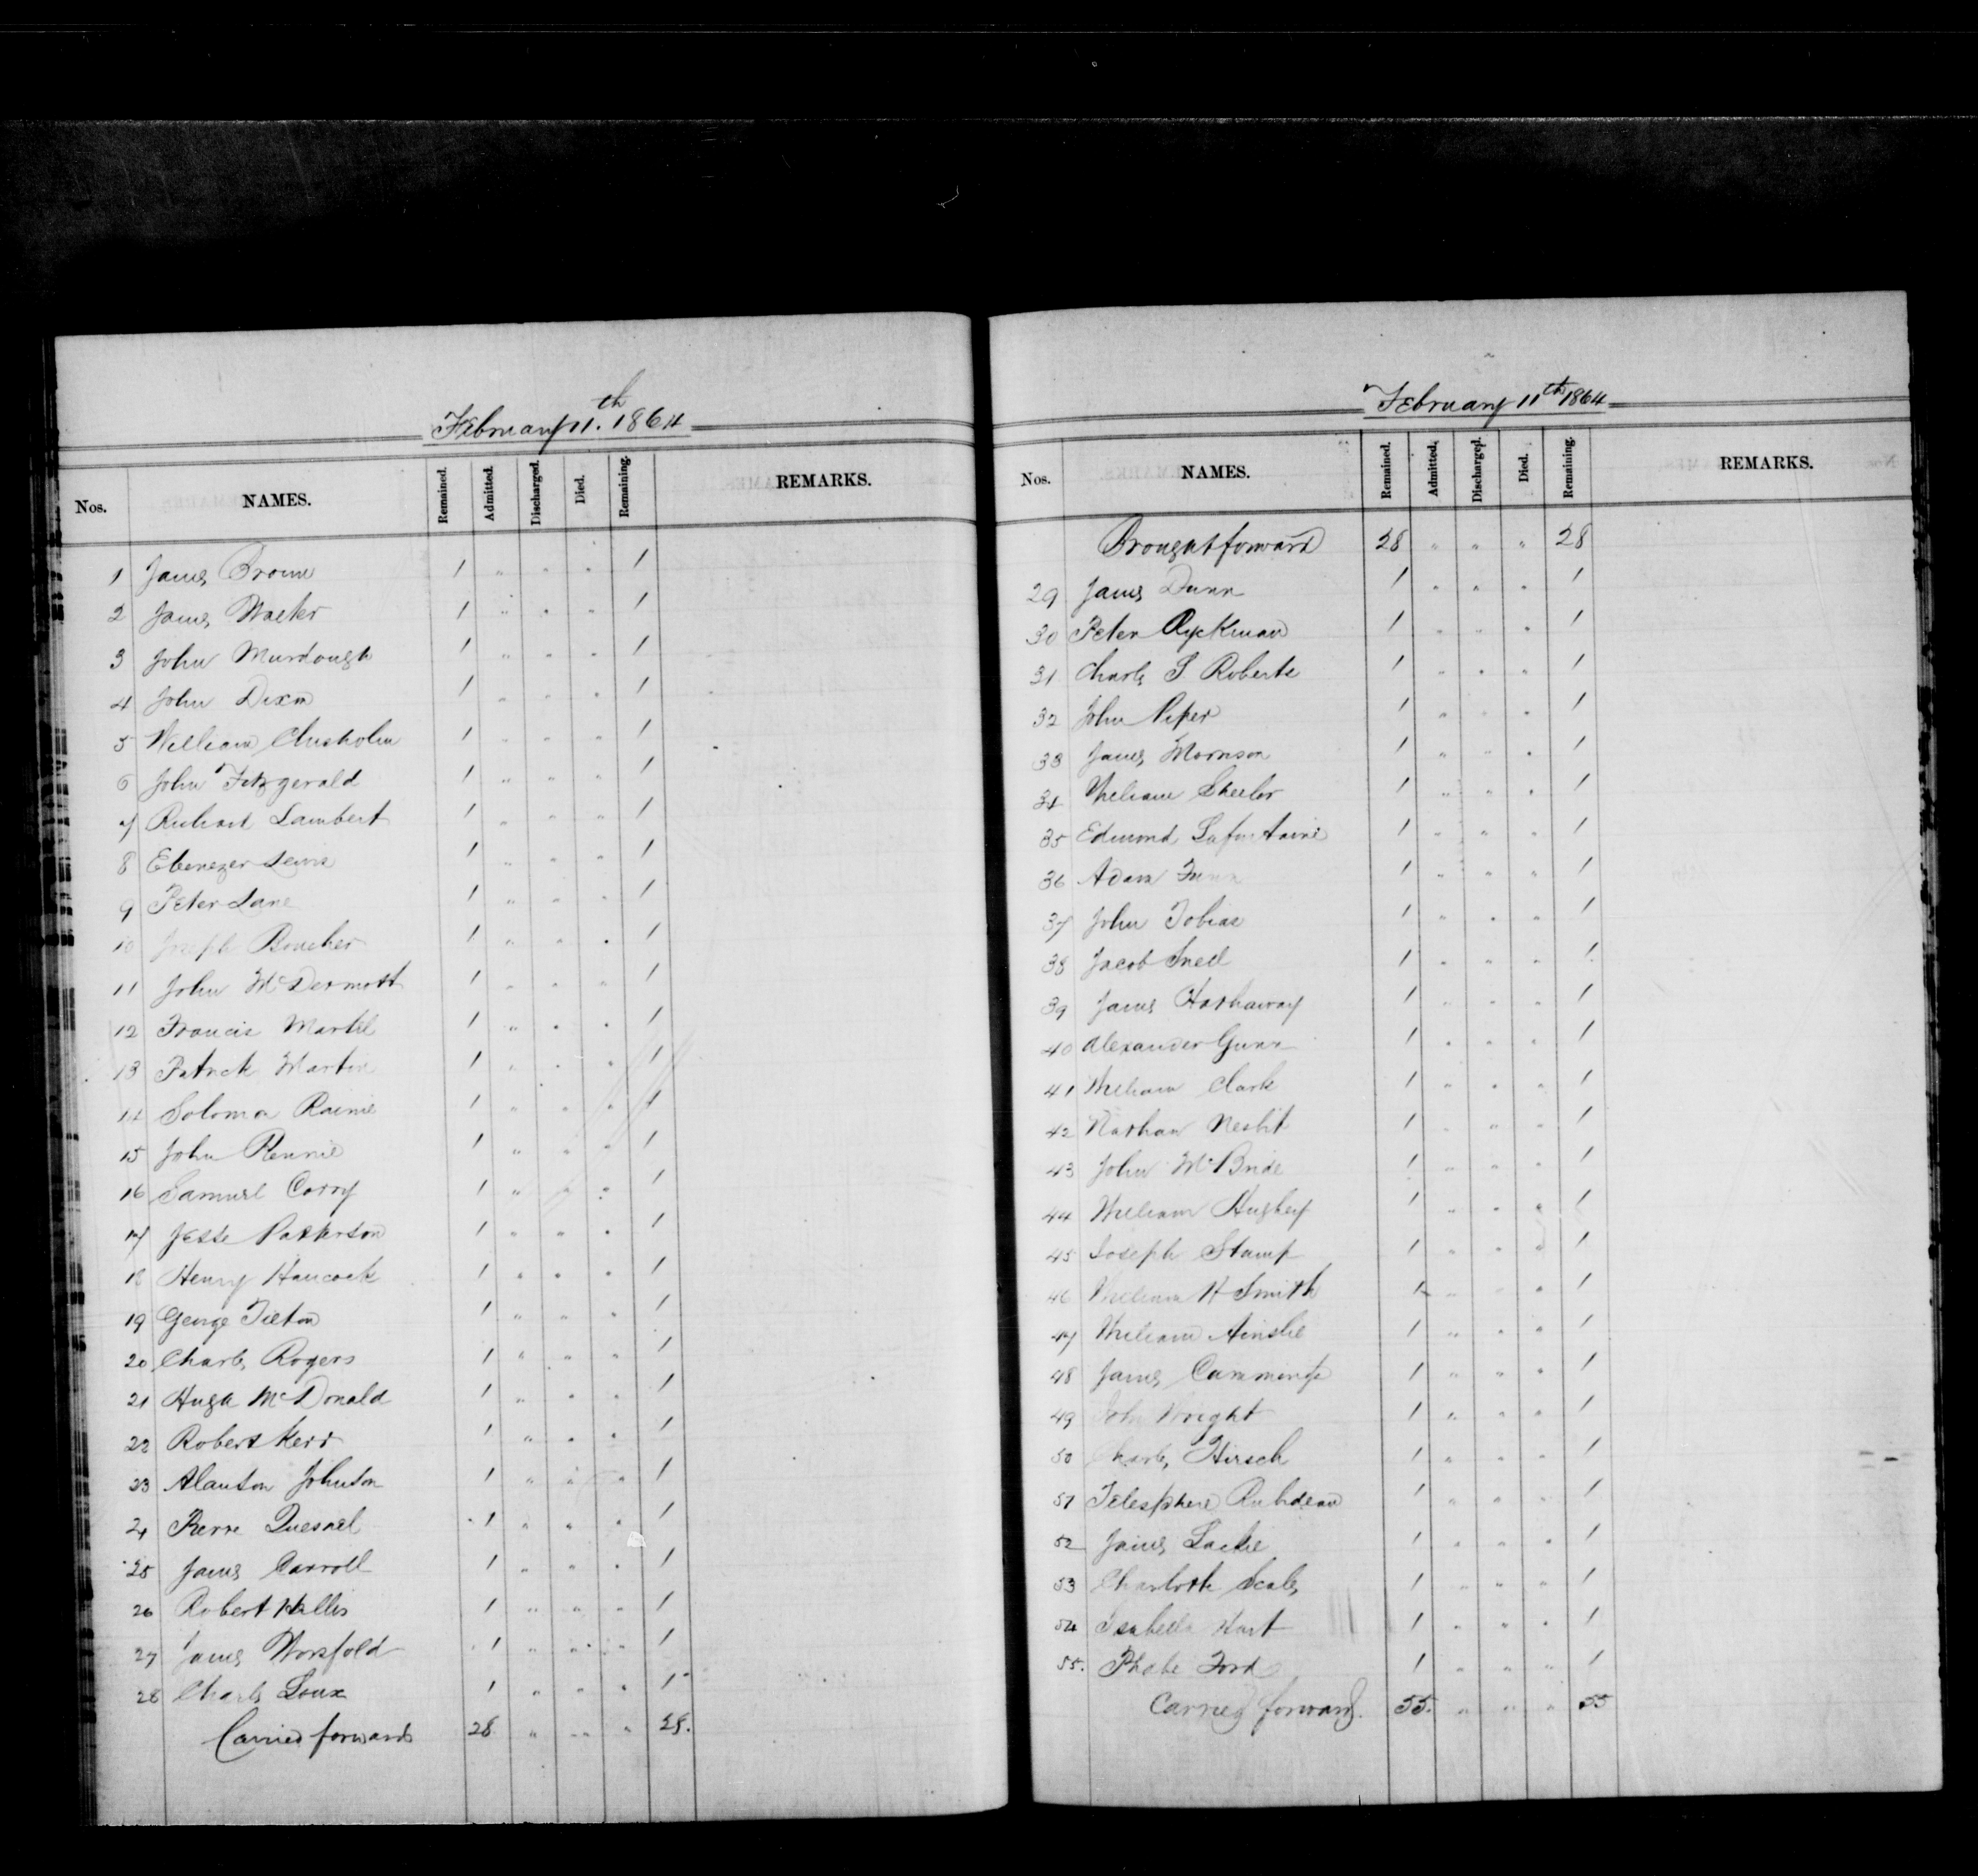 February 11.th 1864
Nos. NAMES. Remained. Admitted. Discharged. Died. Remaining. REMARKS.
1 James Brown 1 " " " 1
2 James Walker 1 " " " 1
3 John Murdough 1 " " " 1
4 John Dixon 1 " " " 1
5 William Chisholm 1 " " " 1
6 John Fitzgerald 1 " " " 1
7 Richard Lambert 1 " " " 1
8 Ebenezer Lewis 1 " " " 1
9 Peter Lane 1 " " " 1
10 Joseph Boucher 1 " " " 1
11 John McDermott 1 " " " 1
12 Francis Martel 1 " " " 1
13 Patrick Martin 1 " " " 1
14 Solomon 1 " " " 1
15 John Rennie 1 " " " 1
16 Samuel Corry 1 " " " 1
17 Jesse Patterson 1 " " " 1
18 Henry Hancock 1 " " " 1
19 George Tilton 1 " " " 1
20 Charles Rogers 1 " " " 1
21 Hugh McDonald 1 " " " 1
22 Robert Kerr 1 " " " 1
23 Alanson Johnson 1 " " " 1
24 Pierre Quesnel 1 " " " 1
25 James Carroll 1 " " " 1
26 Robert Wallis 1 " " " 1
27 James Worsfold 1 " " " 1
28 Charles Loux 1 " " " 1
Carried forward 28 " " " 28.
February 11th 1864
Nos. NAMES. Remained. Admitted. Discharged. Died. Remaining. REMARKS.
Brought forward 28 " " " 28
29 James Dunn 1 " " " 1
30 Peter Ryckman 1 " " " 1
31 Charles S Roberts 1 " " " 1
32 John Piper 1 " " " 1
33 James Morrison 1 " " " 1
34 William Sheeler 1 " " " 1
35 Edmond Lafontaine 1 " " " 1
36 Adam 1 " " " 1
37 John Tobias 1 " " " 1
38 Jacob Snell 1 " " " 1
39 James Hathaway 1 " " " 1
40 Alexander Gunn 1 " " " 1
41 William Clark 1 " " " 1
42 Nathan Nesbit 1 " " " 1
43 John McBride 1 " " " 1
44 William Hughey 1 " " " 1
45 Joseph Stamp 1 " " " 1
46 William H Smith 1 " " " 1
47 William Ainslie 1 " " " 1
48 James Cummings 1 " " " 1
49 John Wright 1 " " " 1
50 Charles Hirsch 1 " " " 1
51 Telesphere 1 " " " 1
52 James Lackie 1 " " " 1
53 Charlotte Scales 1 " " " 1
54 Isabella Hart 1 " " " 1
55. Phobe Ford 1 " " " 1
Carried forward. 55. " " " 55